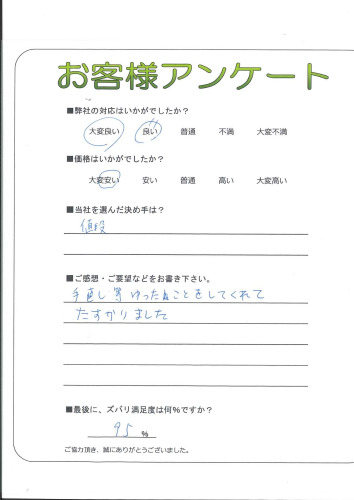 お客様アンケート
■弊社の対応はいかがでしたか?
大変良い 良い 普通 不満 大変不満
■価格はいかがでしたか?
大変安い 安い 普通 高い 大変高い
■当社を選んだ決め手は?
値段
■ご感想・ご要望などをお書き下さい。
手直し等ゆったことをしてくれて
たすかりました
■最後に、ズバリ満足度は何%ですか?
95 %
ご協力頂き、誠にありがとうございました。